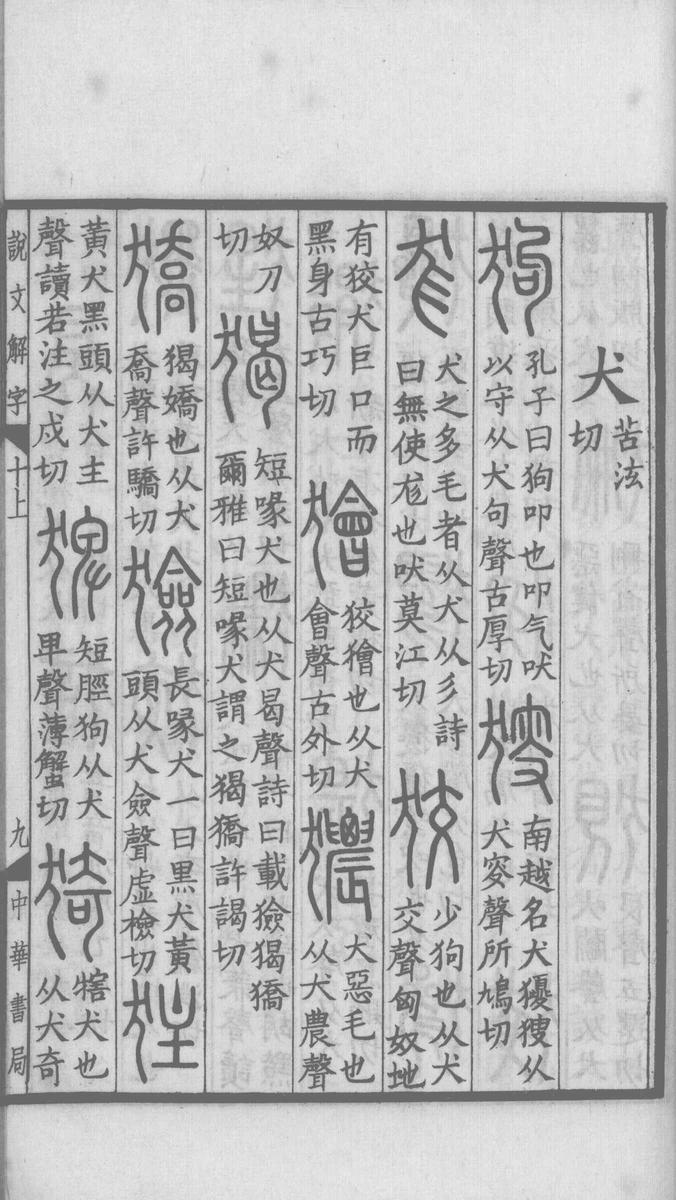 犬苦泫
切
狗孔子曰狗叩也叩气吠
以守从犬句聲古厚切
㺑南越名犬獿㺑从
犬叜聲所鳩切
尨犬之多毛者从犬从彡詩
曰無使尨也吠莫江切
狡少狗也从犬
交聲匈奴地
有狡犬巨口而
黑身古巧切
獪狡獪也从犬
會聲古外切
獳犬惡毛也
从犬農聲
奴刀
切
猲短喙犬也从犬曷聲詩曰載獫猲獢
爾雅曰短喙犬謂之猲獢許謁切
獢猲獢也从犬
喬聲許驕切
獫長喙犬一曰黑犬黃
頭从犬僉聲虛檢切
狂
黃犬黑頭从犬主
聲讀若注之戍切
猈短脛狗从犬
卑聲薄蟹切
猗犗犬也
从犬奇
說文解字 十上 九 中華書局